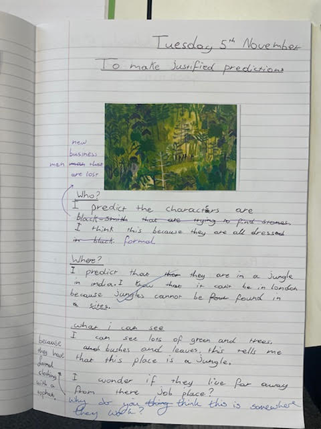 Tuesday 5th November
To make Justified predictions
new
business
men that
are lost
Who?
I predict the characters are
black smith that are trying to find
I think this because they are all dressed
in black formal
Where?
I predict that they are in a Jungle
in india. I know that it cover be in london
because Jungles cannot be found in
a cities.
what i can see
I can see lots of green and trees
and bushes and leaves, this tells me
that this place is a Jungle.
because
they have
formal
clothing
I wonder if they live far away
from there Job place?
Why do you think this is somewhere
they work?